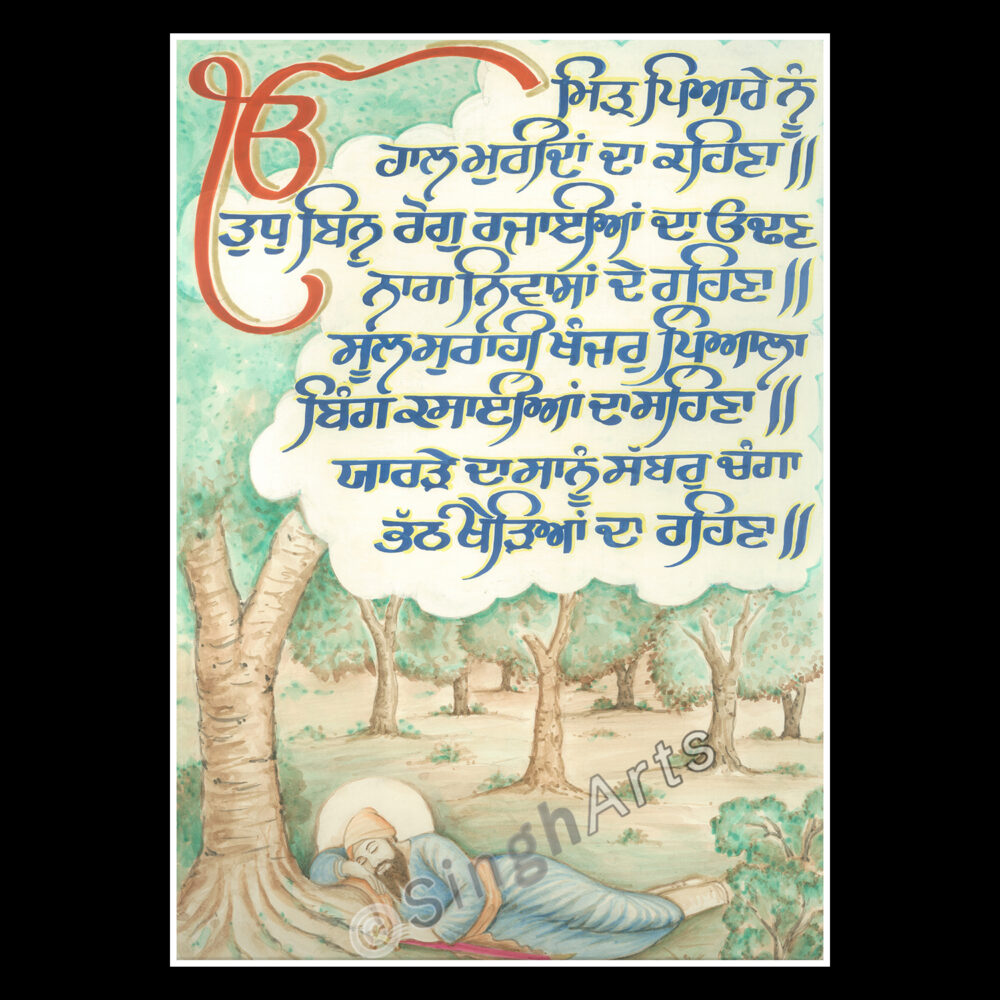 ੴ ਮਿਤ੍ਰ ਪਿਆਰੇ ਨੂੰ
ਹਾਲ ਮੁਰੀਦਾਂ ਦਾ ਕਹਿਣਾ॥
ਤੁਧੁ ਬਿਨੁ ਰੋਗੁ ਰਜਾਈਆਂ ਦਾ ਓਢਣ
ਨਾਗ ਨਿਵਾਸਾਂ ਦੇ ਰਹਿਣਾ॥
ਸੂਲ ਸੁਰਾਹੀ ਖੰਜਰੁ ਪਿਆਲਾ
ਬਿੰਗ ਕਸਾਈਆਂ ਦਾ ਸਹਿਣਾ॥
ਯਾਰੜੇ ਦਾ ਸਾਨੂੰ ਸੱਥਰੁ ਚੰਗਾ
ਭੱਠ ਖੇੜਿਆਂ ਦਾ ਰਹਿਣਾ॥
©SinghArts